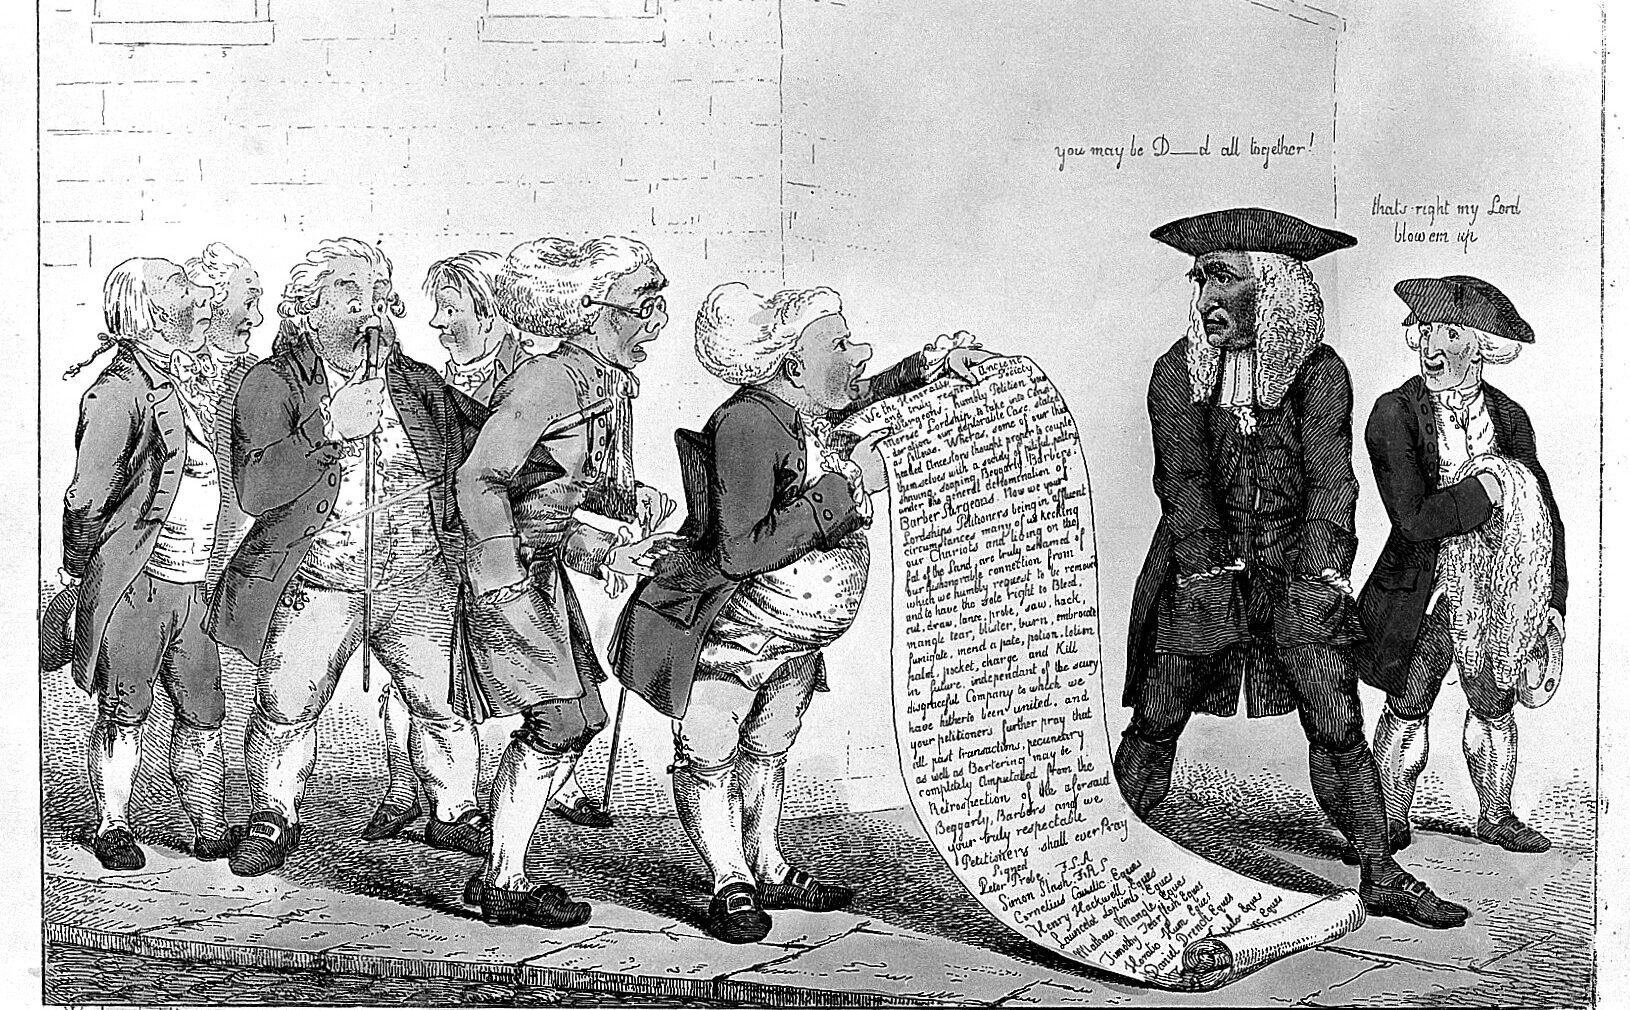 you may be D—d all together!
thats right my Lord
blow em up
We the Honorable Anciene
and truly respe Society
of Surgeons, humbly Petition your
Morose Lordship, to take into Consi-
deration our deplorable Case. stated
as follows. Wheras, some of our thik
headed Ancestors thought proper to couple
themselves with a society of pitiful, paltry,
shaving, soaping Beggarly Barbers.
under the general denomination of
Barber Surgeons. Now we your
Lordships Petitioners being in affluent
circumstances many of us keeking
our Chariots and living on the
fat of the Land, are truly ashamed of
our dishonorable connection, from
which we humbly request to be remov
and to have the sole right to Bleed,
cut, draw, lance, probe, saw, hack,
mangle, tear, blister, burn, embrocate
fumigate, mend a pate, potion, lotion
patch, pocket, charge and Kill
in future, independant of the scurvy
disgraceful Company to which we
have hitherto been united. and
your petitioners further pray that
all past transactions, pecuniary
as well as Bartering may be
completely Amputated from the
Retrospection of the aforsaid
Beggarly, Barbers and we
your truly respectable
Petitioners shall ever Pray
Signed
Peter Probe F.S.A
Simon Slash F.A.S
Cornelius Caustic Eques
Henry Hackwell Eques
Launcelot Eques
Mathew Mangle Eques
Timothy Tear flesh Eques
Horatio Eques
Daniel Drench Eques
Eques
Eques